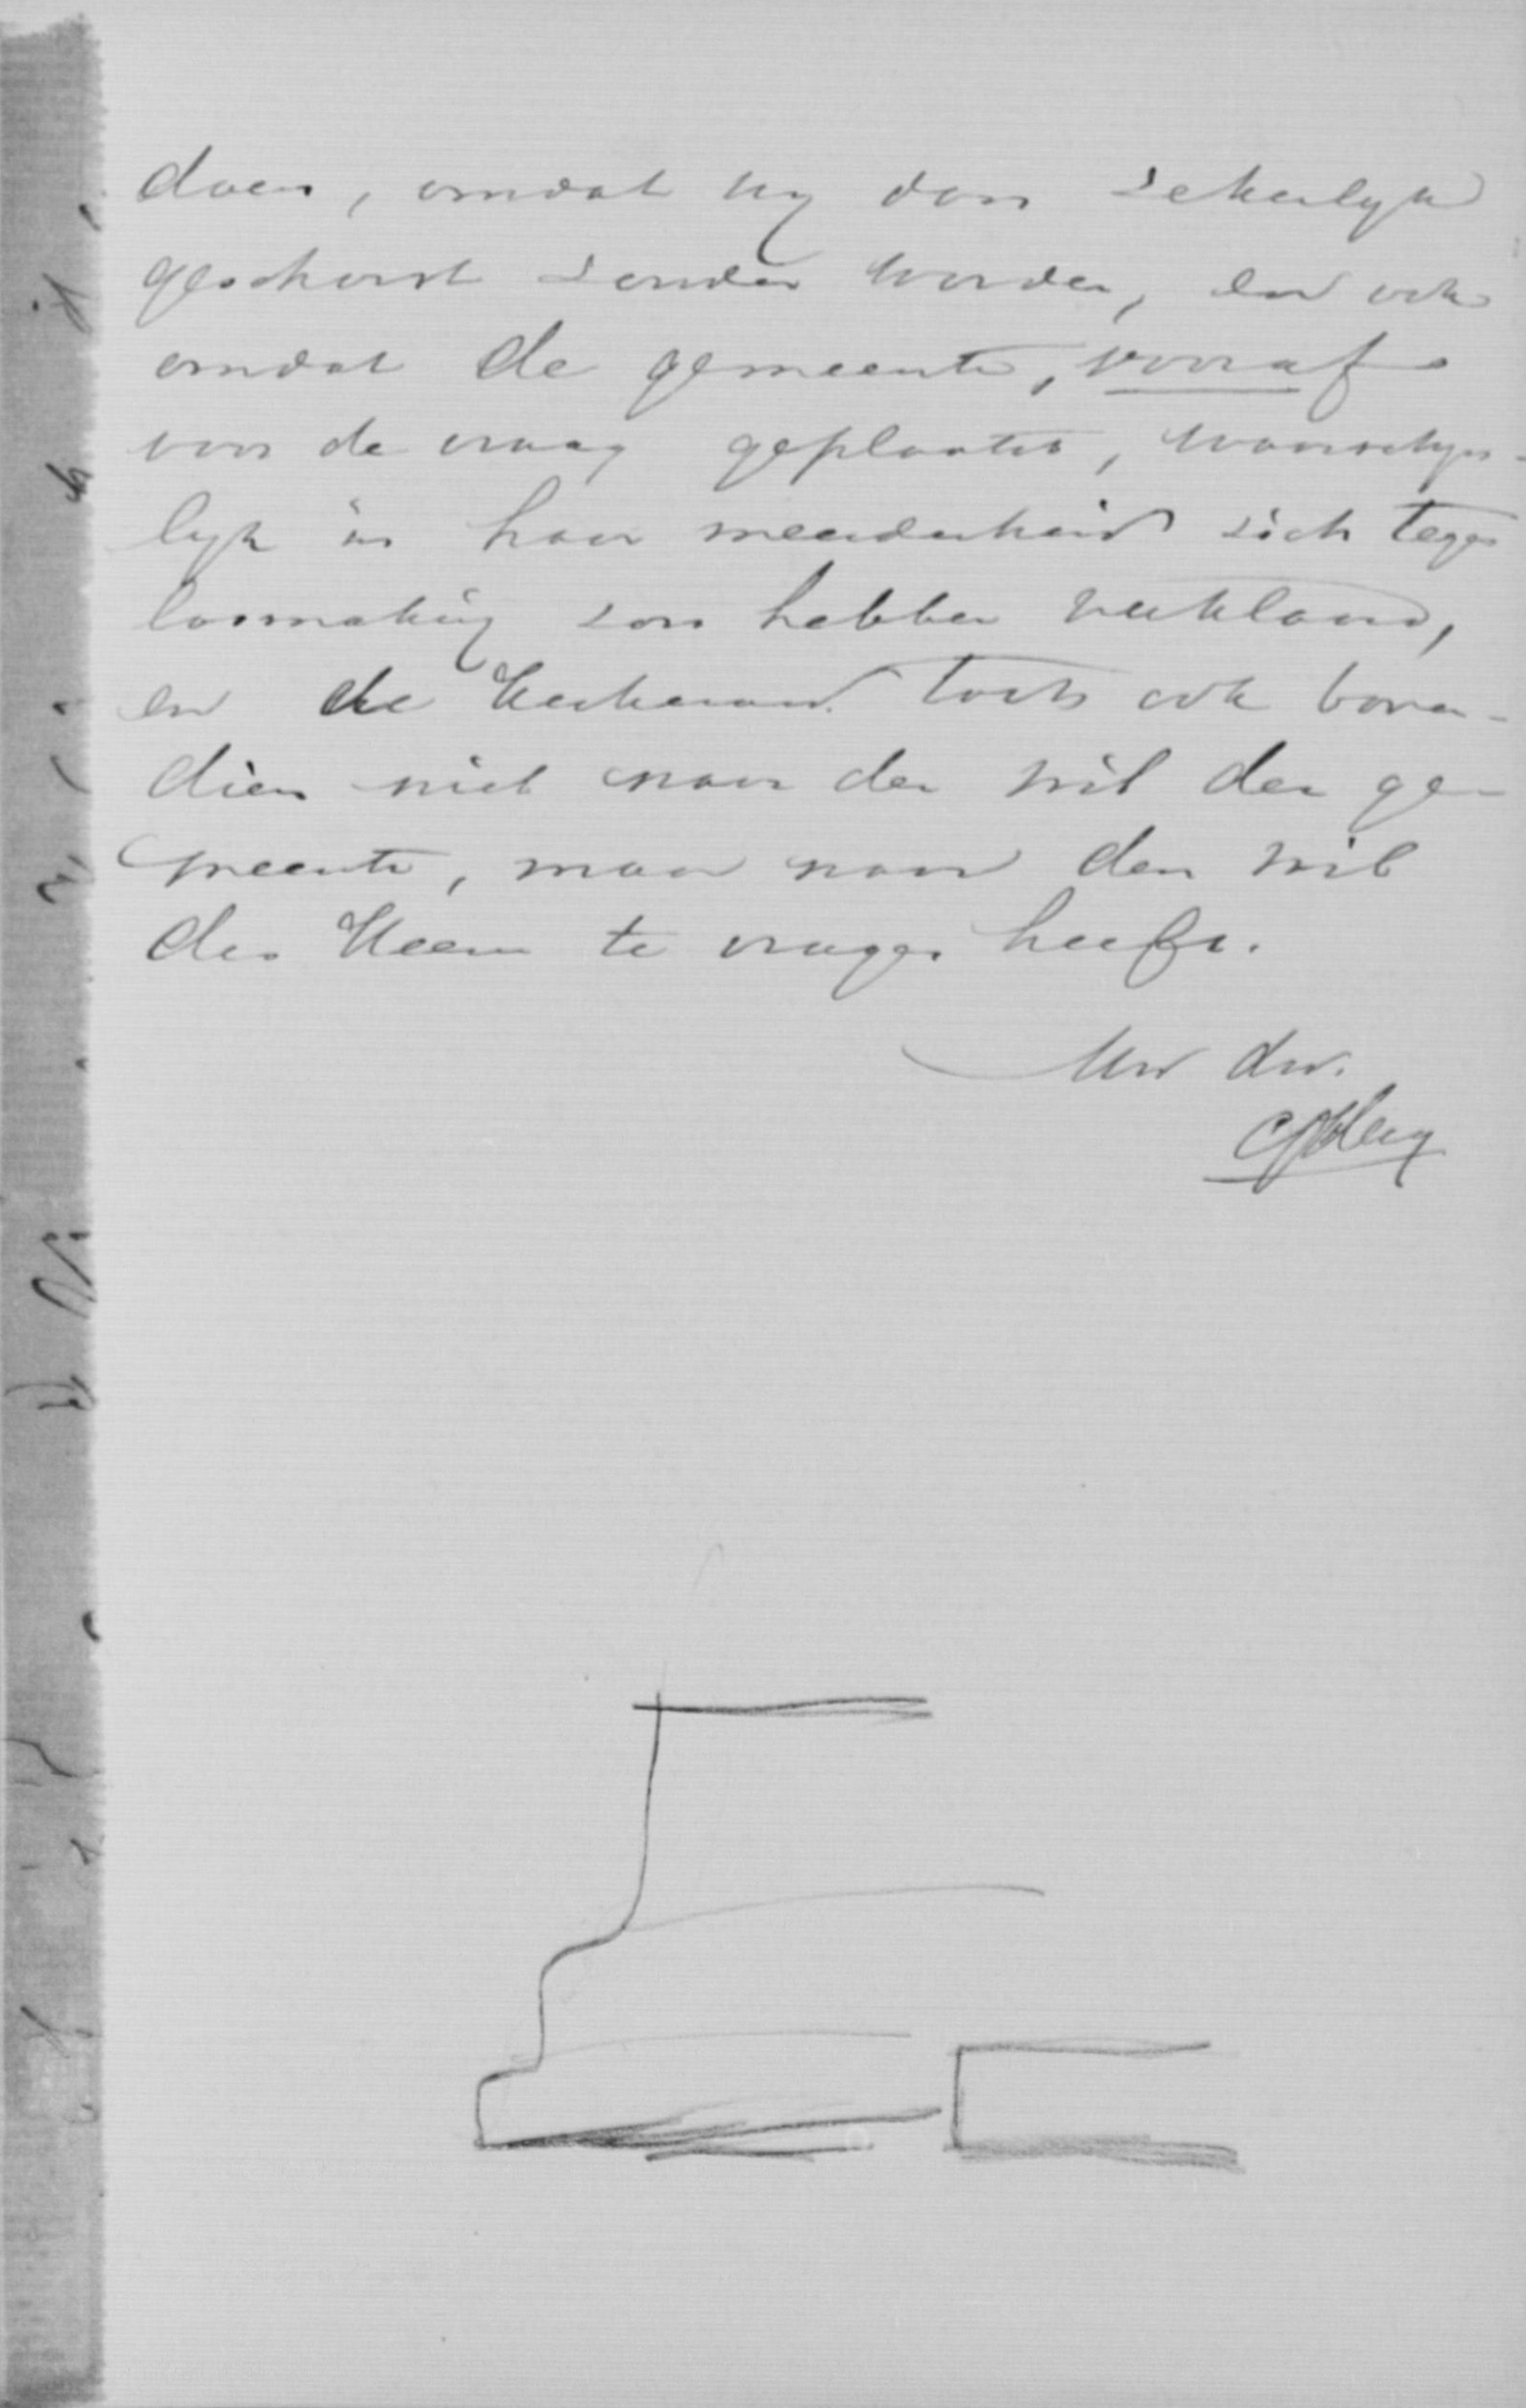 doen, omdat hy dan zekerlyk
geschorst zouden worden, en ook
omdat de gemeente, vooraf
voor de vraag geplaatst, waarschyn-
lyk in haar meerderheid zich tegen
losmaking zou hebben verklaard,
en de Kerkeraad toch ook boven-
dien niet naar den wil der ge-
meente, maar naar den wil
des Heeren te vragen heeft.
Uw dw.